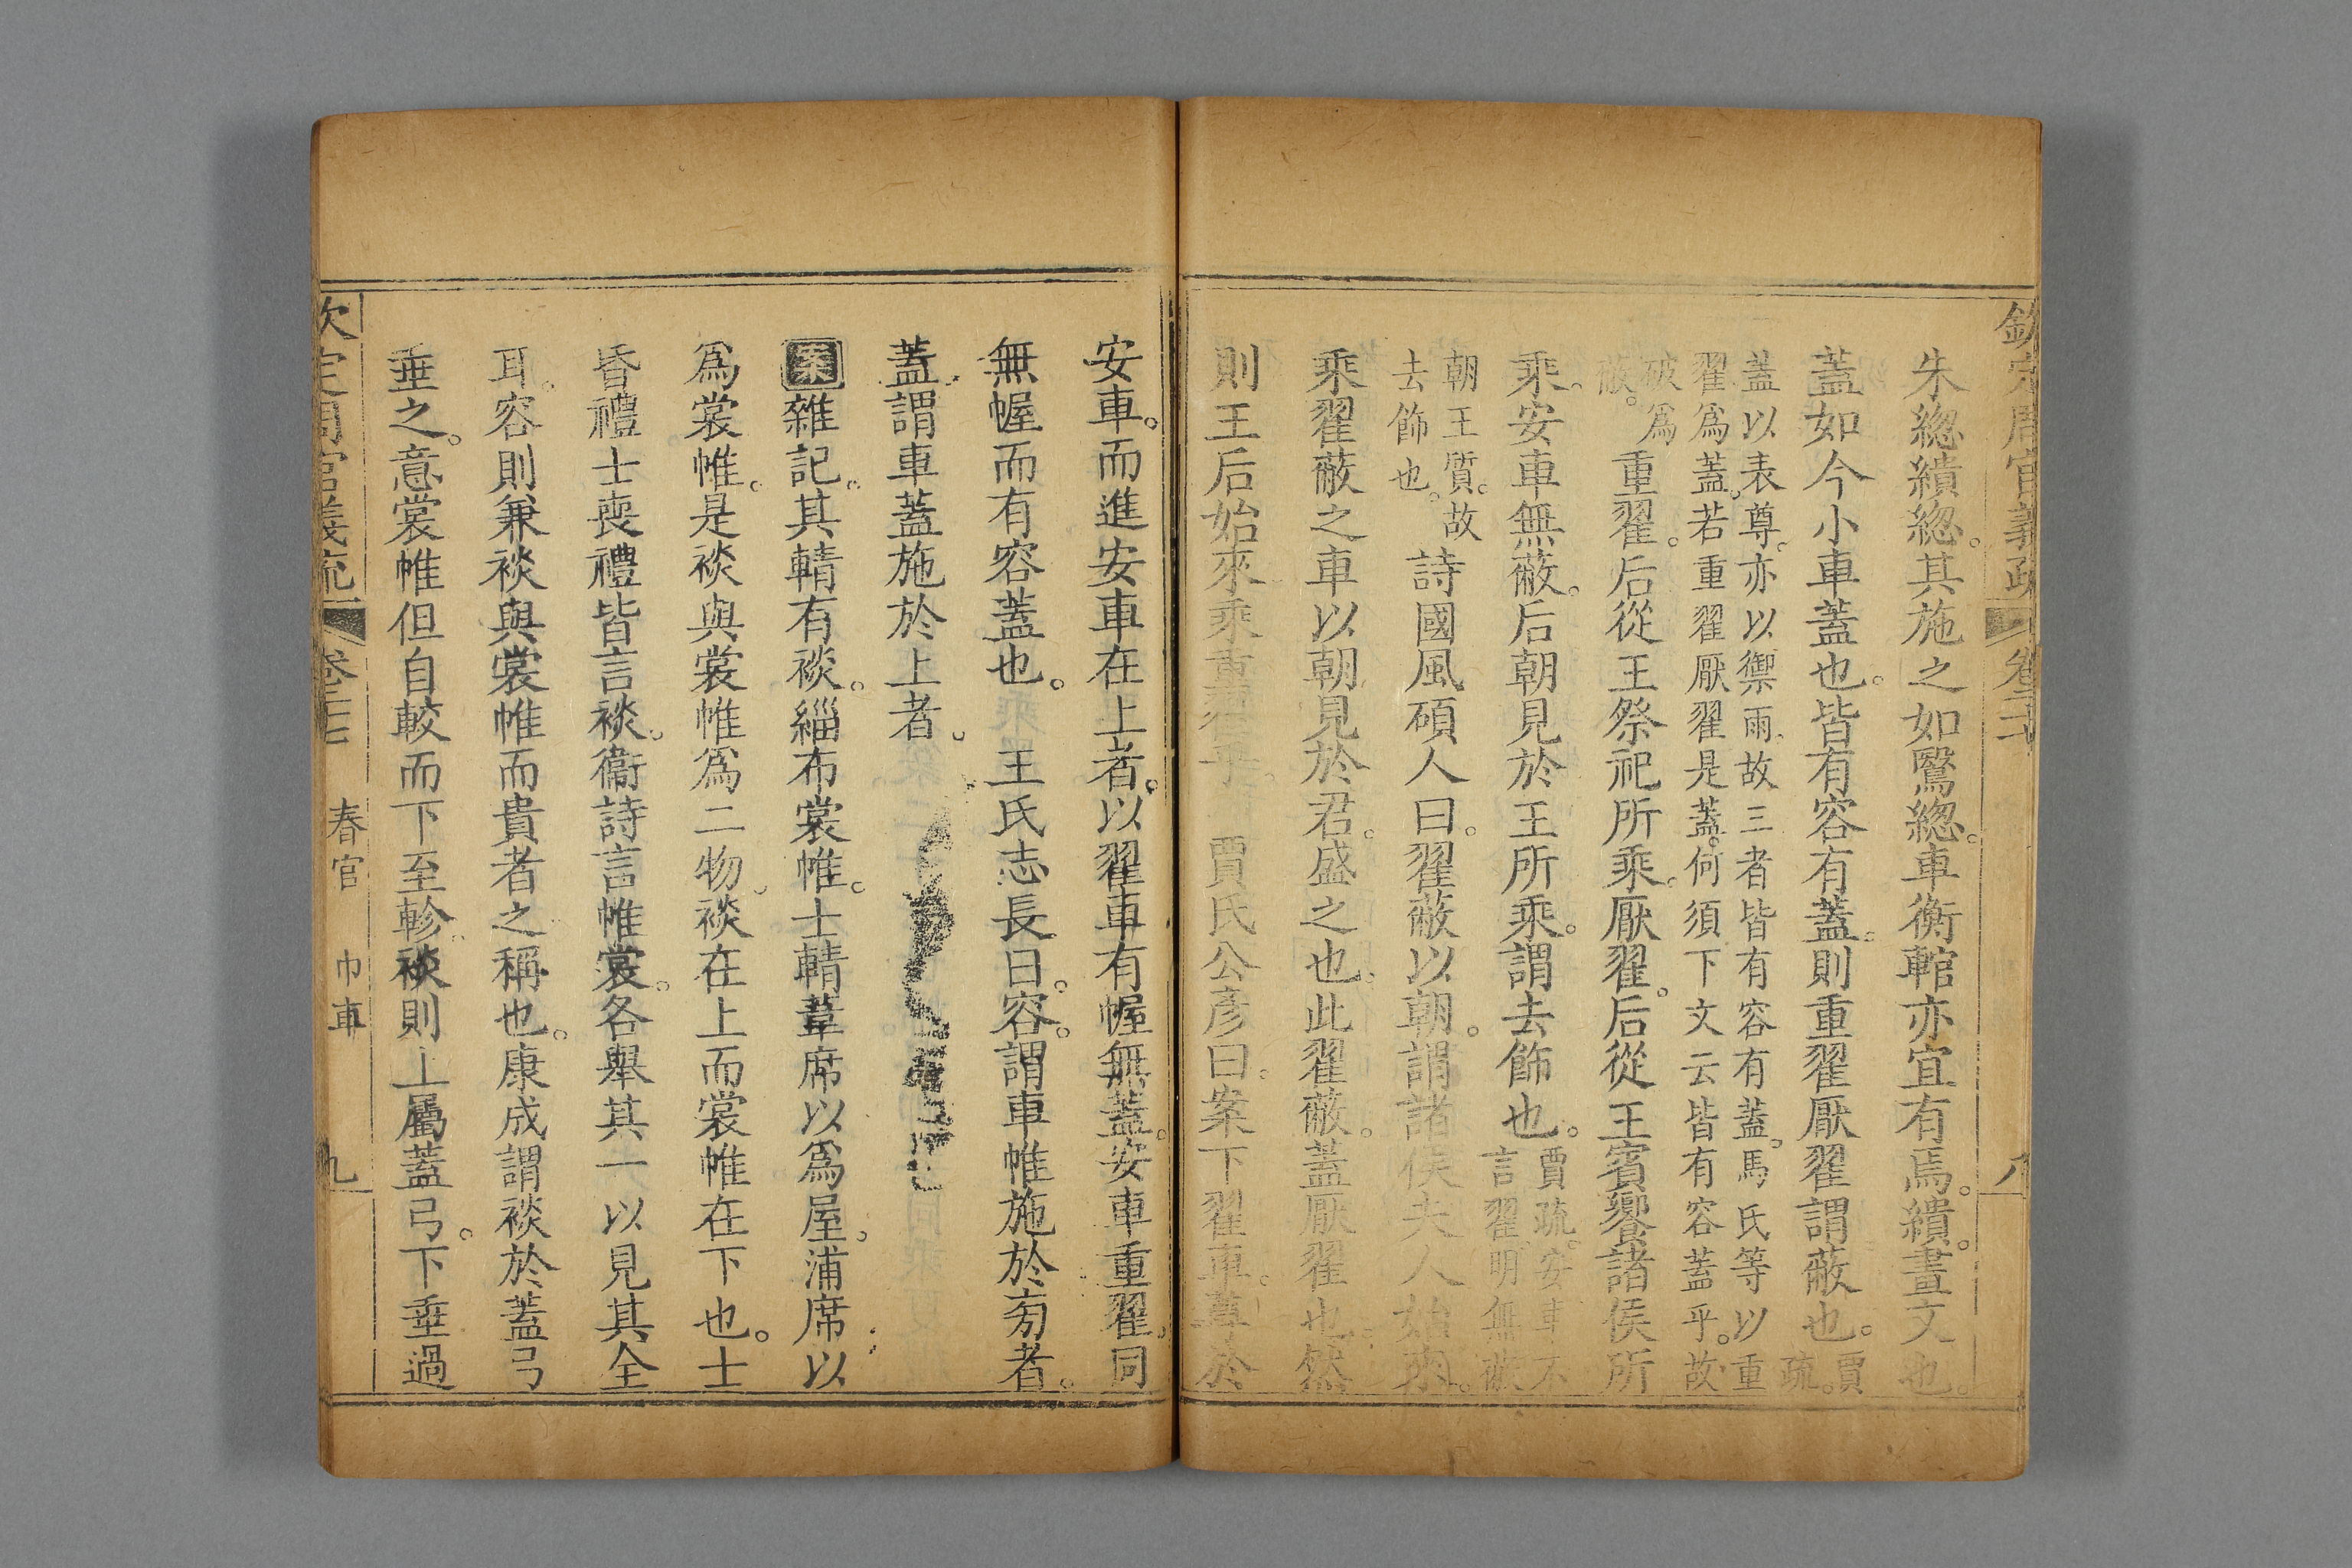 欽定周官義疏 卷二十七 八
朱緫繢緫。其施之如鷖緫。車衡輨亦宜有焉。繢。畫文也。
蓋如今小車蓋也。皆有容有蓋。則重翟厭翟謂蔽也。賈疏。
蓋以表尊。亦以禦雨。故三者皆有容有蓋。馬氏等以重
翟爲蓋。若重翟厭翟是蓋。何須下文云皆有容蓋乎。故
破爲
蔽。
重翟。后從王祭祀所乘。厭翟。后從王賓饗諸侯所
乘。安車無蔽。后朝見於王所乘。謂去飾也。
賈疏。安車不
言翟。明無蔽
朝王質。故
去飾也。
詩國風碩人曰。翟蔽以朝。謂諸侯夫人始來。
乘翟蔽之車以朝見於君。盛之也。此翟蔽。蓋厭翟也。然
則王后始來乘重翟乎。 賈氏公彥曰。案下翟車。尊於
安車。而進安車在上者。以翟車有幄無蓋。安車重翟。同
無幄而有容蓋也。 王氏志長曰。容。謂車帷施於旁者。
蓋謂車蓋施於上者。
案雜記。其輤有裧。緇布裳帷。士輤葦席以爲屋。蒲席以
爲裳帷。是裧與裳帷爲二物。裧在上而裳帷在下也。士
昏禮士喪禮皆言裧。衞詩言帷裳。各舉其一以見其全
耳。容則兼裧與裳帷而貴者之稱也。康成謂裧於蓋弓
垂之。意裳帷但自較而下至軫。裧則上屬蓋弓。下垂過
欽定周官義疏 卷二十七 春官 巾車 九